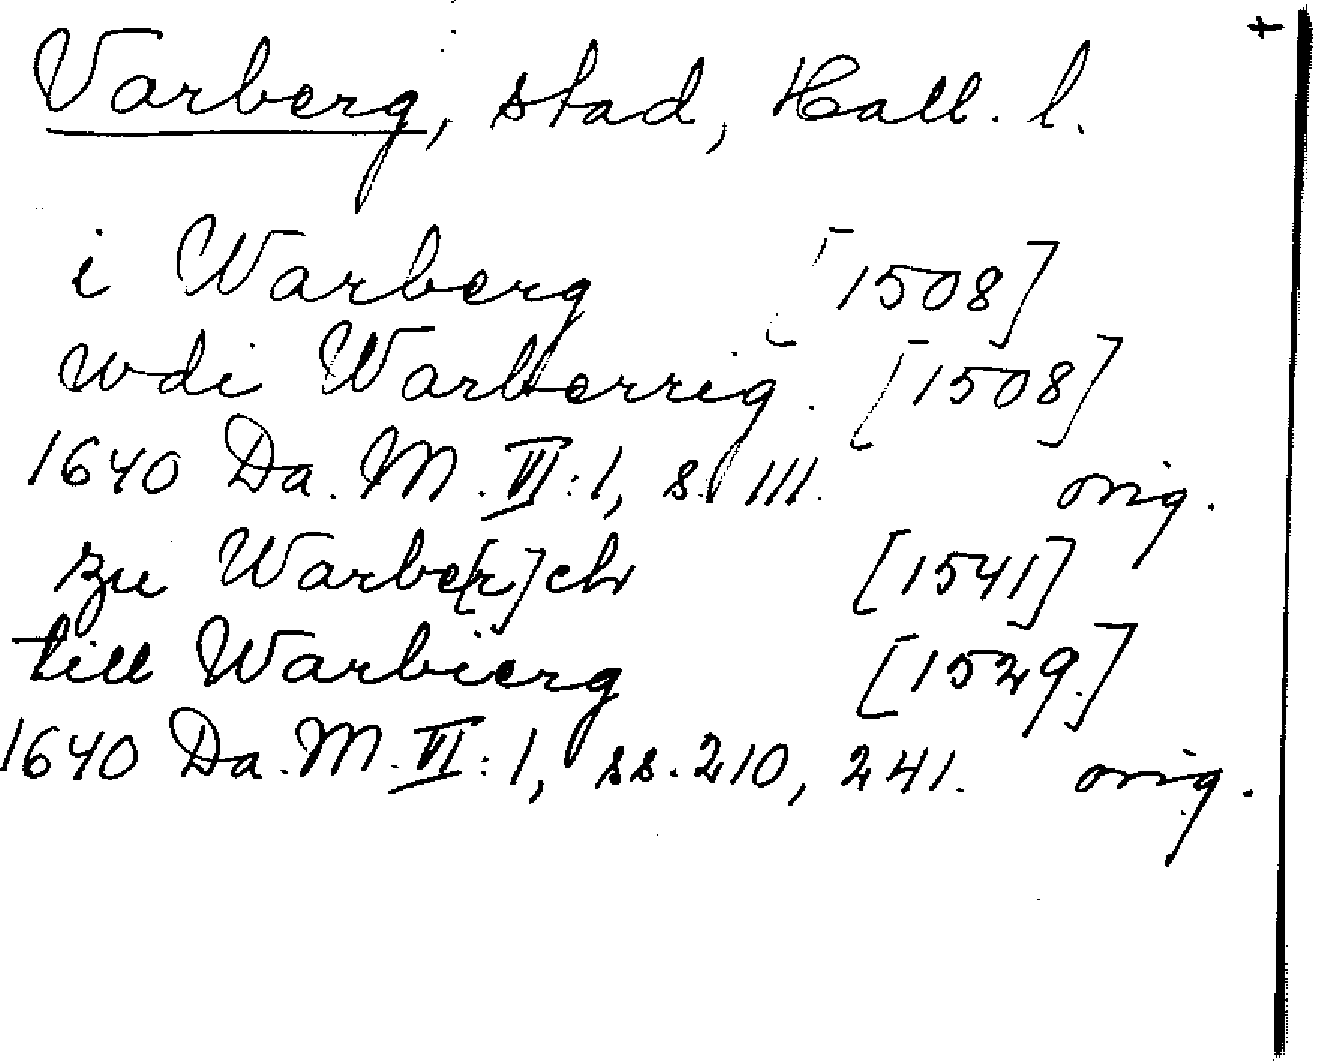 Varberg, stad, Hall. l.
i Warberg [1508]
wdi Warberrig. [1508]
1640 Da. M. VI:1, s. 111. orig.
zu Warbe[r]ch [1541]
till Warbierg [1529.]
1640 Da. M. VI:1, ss. 210, 241. orig.